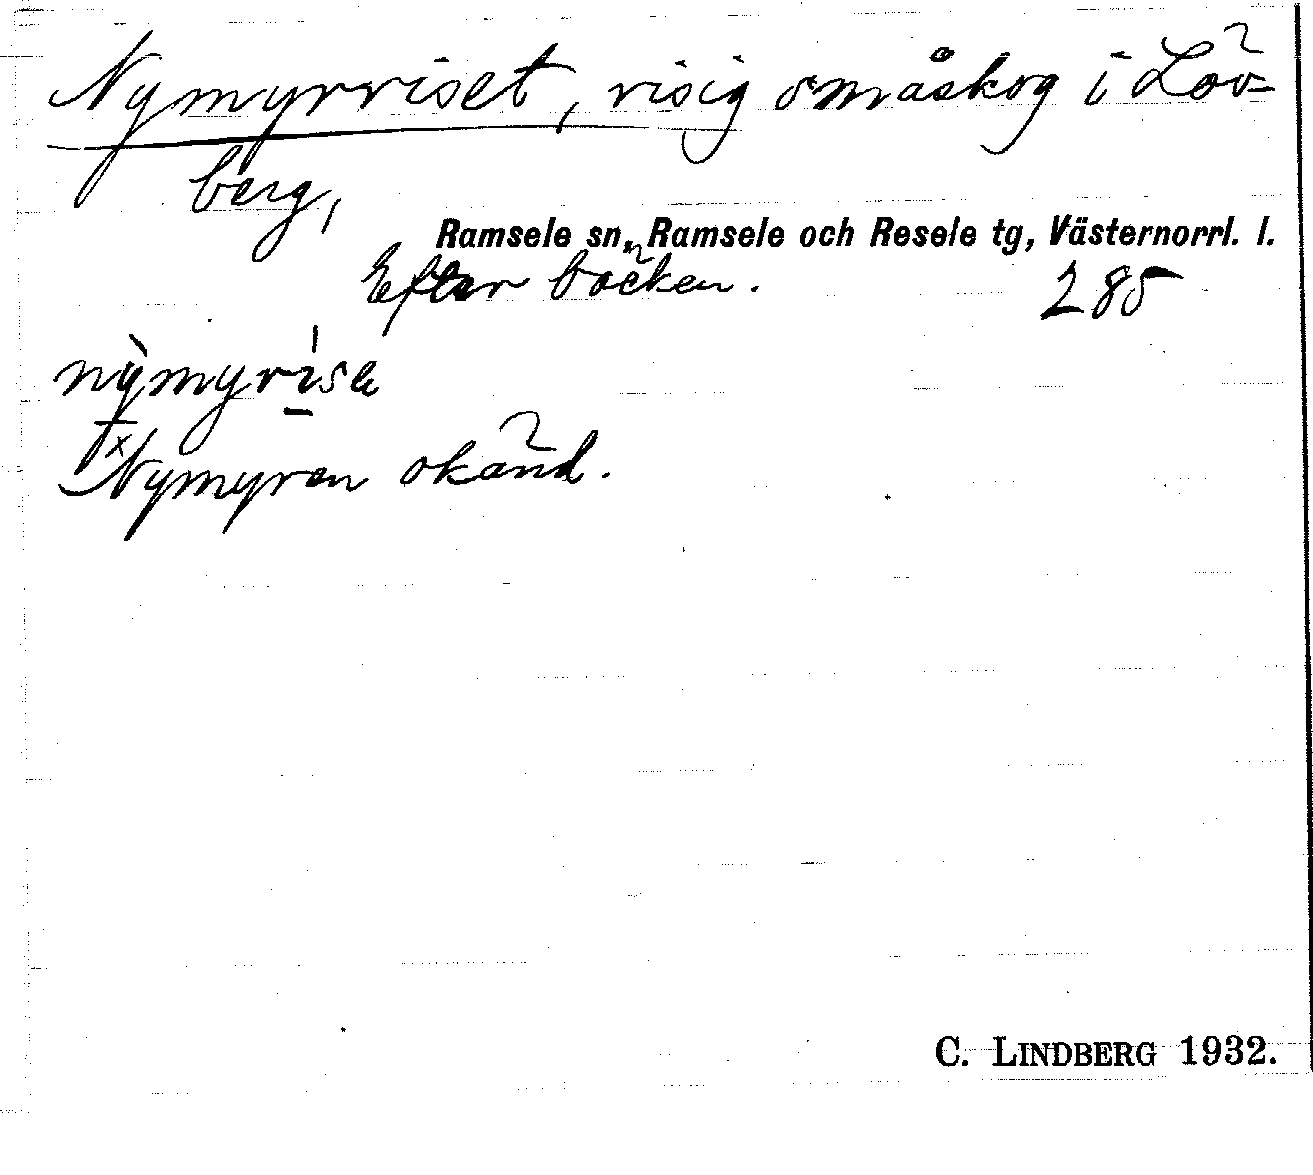 Nymyrriset, risig småskog i Löv-
berg,
Ramsele sn, Ramsele och Resele tg, Västernorrl. l.
Efter bäcken. 285
nỳmyrisa
×Nymyren okänd.
C. LINDBERG 1932.